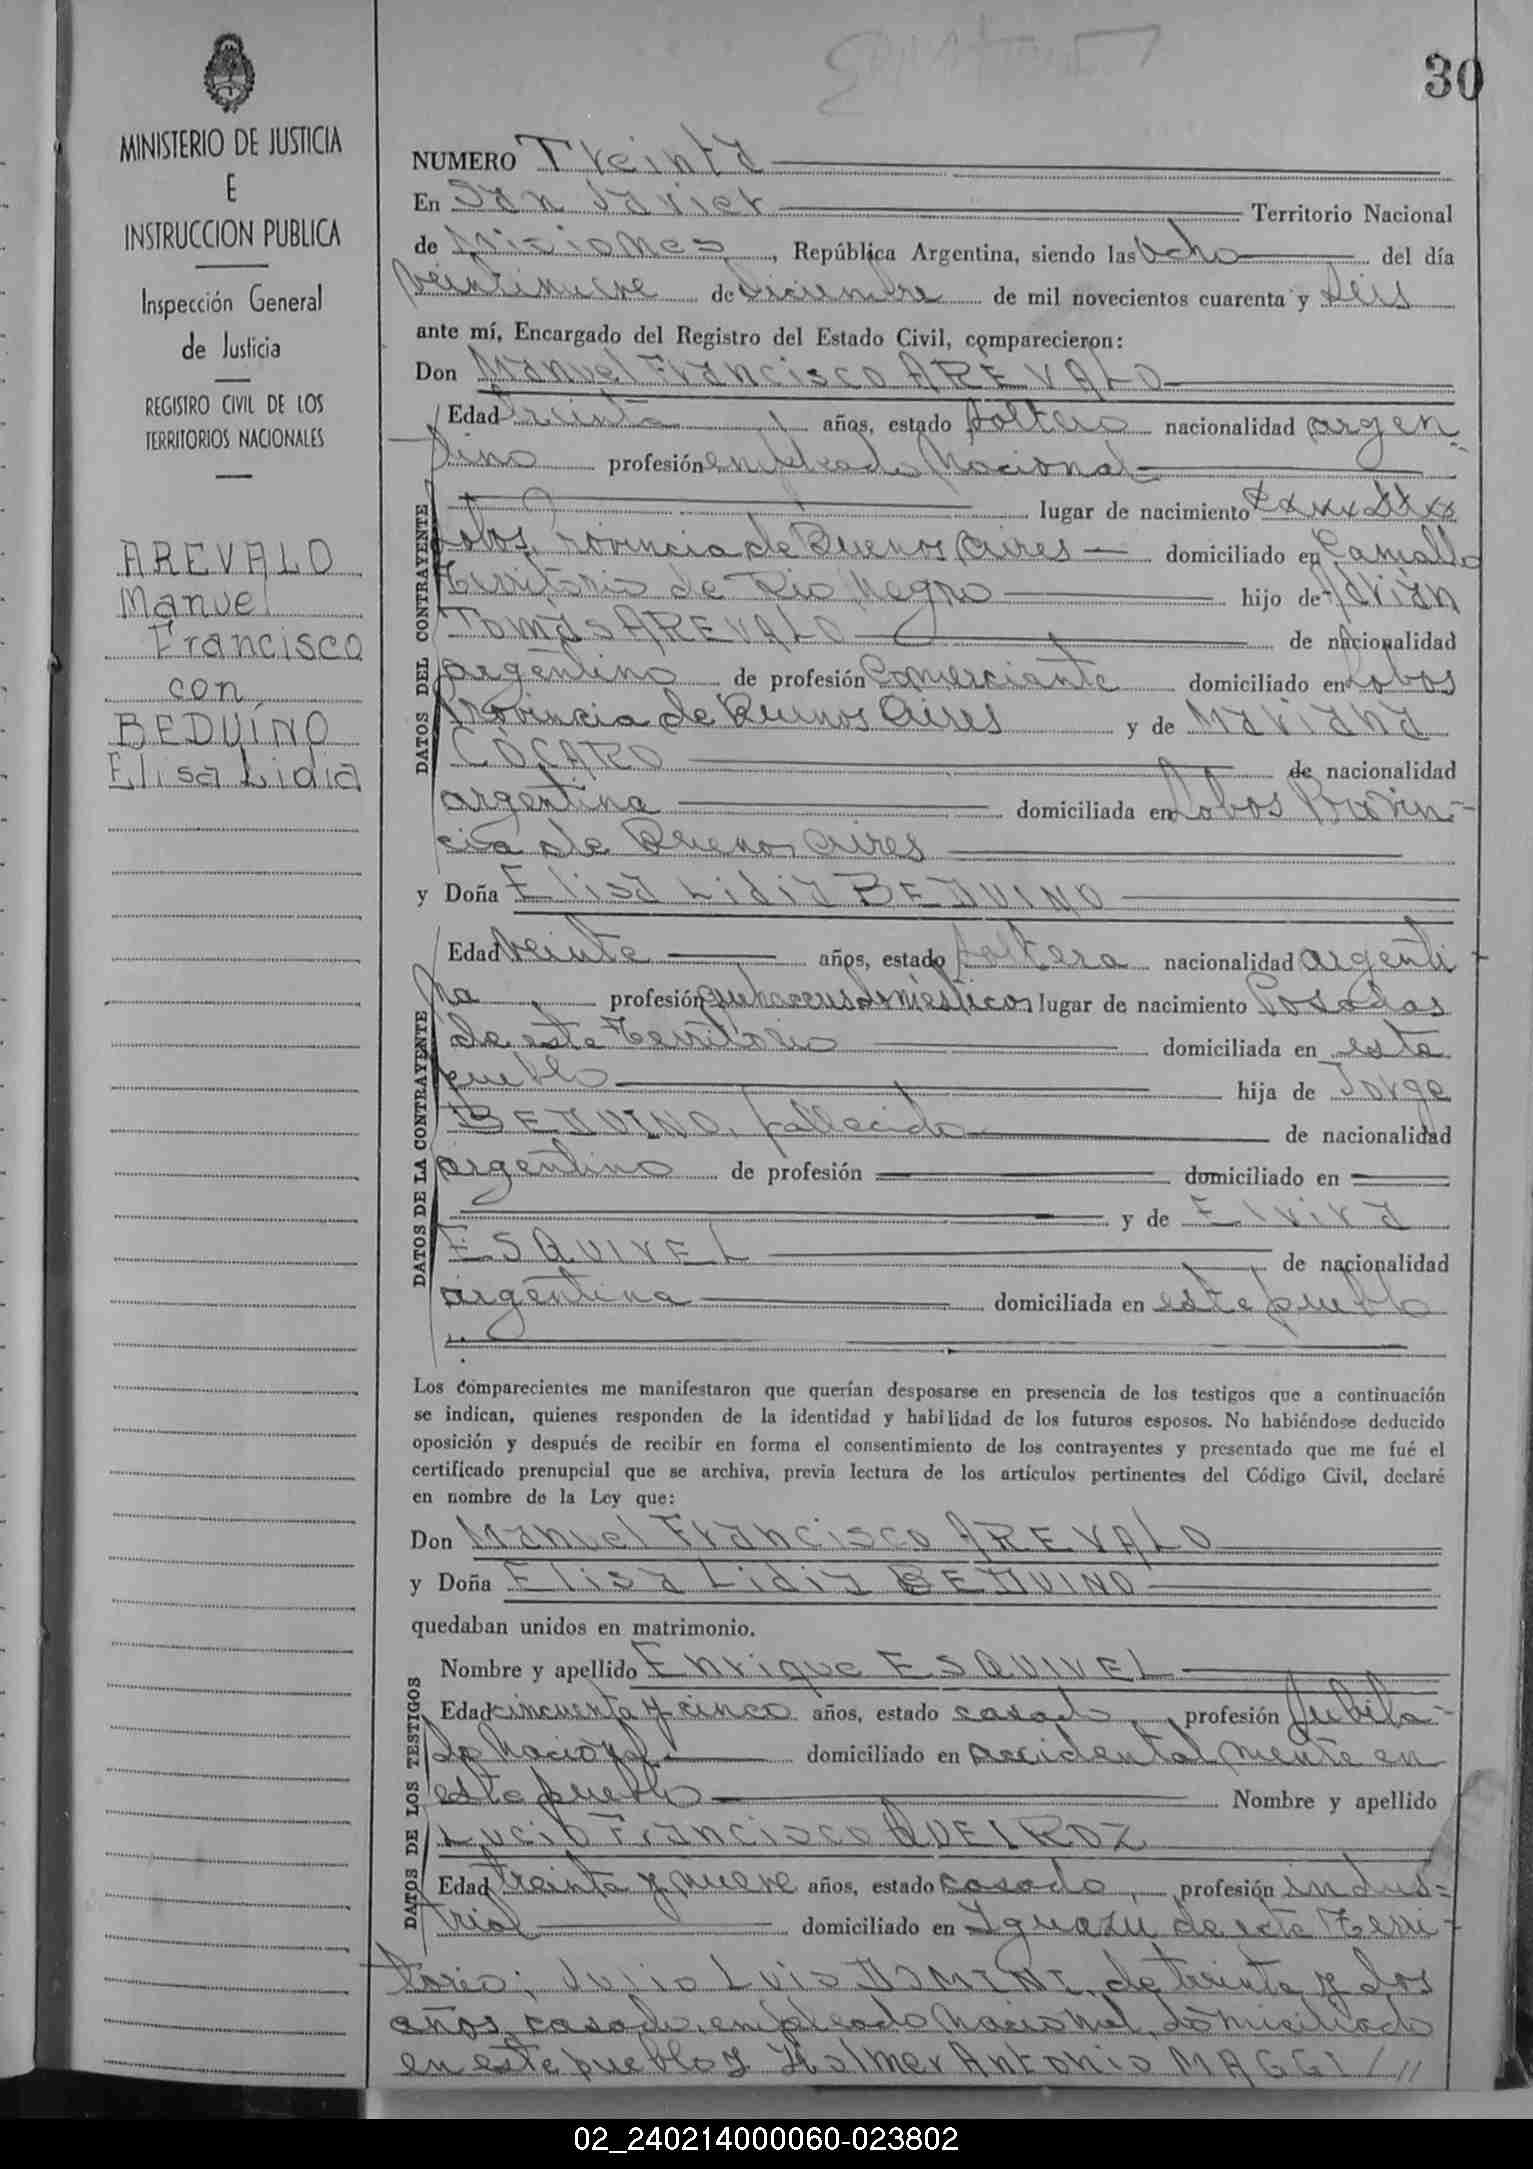 30
MINISTERIO DE JUSTICIA
E
INSTRUCCION PUBLICA
Inspección General
de Justicia
REGISTRO CIVIL DE LOS
TERRITORIOS NACIONALES
AREVALO
Manuel
Francisco
con
BEDUÍNO
Elisa Lidia
NUMERO Treinta
En San Javier Territorio Nacional
de Misiones, República Argentina, siendo las ocho del día
veintinueve de diciembre de mil novecientos cuarenta y seis
ante mí, Encargado del Registro del Estado Civil, comparecieron:
Don Manuel Francisco AREVALO
DATOS DEL CONTRAYENTE
Edad treinta años, estado soltero nacionalidad argen-
tino profesión empleado Nacional
lugar de nacimiento
Lobos, Provincia de Buenos Aires domiciliado en Camallo
Territorio de Rio Negro hijo de Adrián
Tomás AREVALO de nacionalidad
argentino de profesión Comerciante domiciliado en Lobos
Provincia de Buenos Aires y de Mariana
COCARO de nacionalidad
argentina domiciliada en Lobos Provin-
cia de Buenos Aires
y Doña Elisa Lidia BEDUINO
DATOS DE LA CONTRAYENTE
Edad veinte años, estado soltera nacionalidad argenti-
na profesión quehaceres domésticos lugar de nacimiento Posadas
de este Territorio domiciliada en este
pueblo hija de Jorge
BEDUINO, fallecido de nacionalidad
argentino de profesión domiciliado en
y de Elvira
ESQUIVEL de nacionalidad
argentina domiciliada en este pueblo
Los comparecientes me manifestaron que querían desposarse en presencia de los testigos que a continuación
se indican, quienes responden de la identidad y habilidad de los futuros esposos. No habiéndose deducido
oposición y después de recibir en forma el consentimiento de los contrayentes y presentado que me fué el
certificado prenupcial que se archiva, previa lectura de los artículos pertinentes del Código Civil, declaré
en nombre de la Ley que:
Don Manuel Francisco AREVALO
y Doña Elisa Lidia BEDUINO
quedaban unidos en matrimonio.
DATOS DE LOS TESTIGOS
Nombre y apellido Enrique ESQUIVEL
Edad cincuenta y cinco años, estado casado, profesión Jubila-
do Nacional domiciliado en accidentalmente en
este pueblo Nombre y apellido
Lucio Francisco QUEIROZ
Edad treinta y nueve años, estado casado, profesión indus=
trial domiciliado en Iguazú de este Terri-
torio; Julio Luis DOMINI, de treinta y dos
años, casado, empleado Nacional, domiciliado
en este pueblo y Holmer Antonio MAGGI ///
02_240214000060-023802